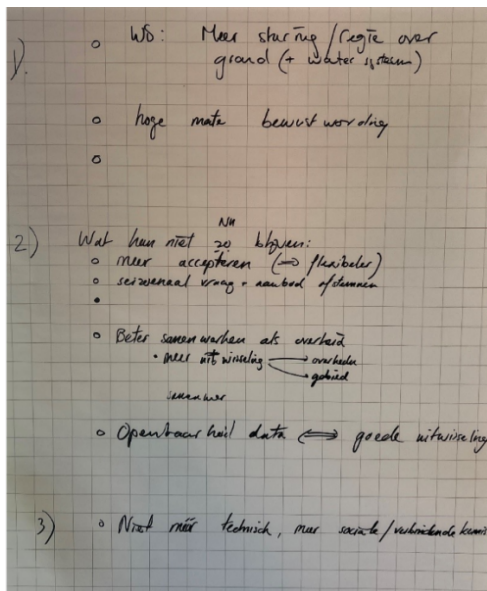 1). o WS: Meer sturing/regie over
grond (+ water systeem)
o hoge mate bewustwording
o
Nu
2) Wat kan niet zo blijven:
o meer accepteren (⇒ flexibeler)
o seizoenaal vraag + aanbod afstemmen
•
o Beter samenwerken als overheid
• meer uitwisseling → overheden
→ gebied
samenwer
o Openbaarheid data ⇔ goede uitwisseling
3) o Niet méér technisch, meer sociale/verbindende kennis